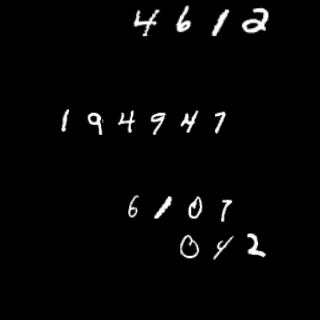 4612
194947
6107
042